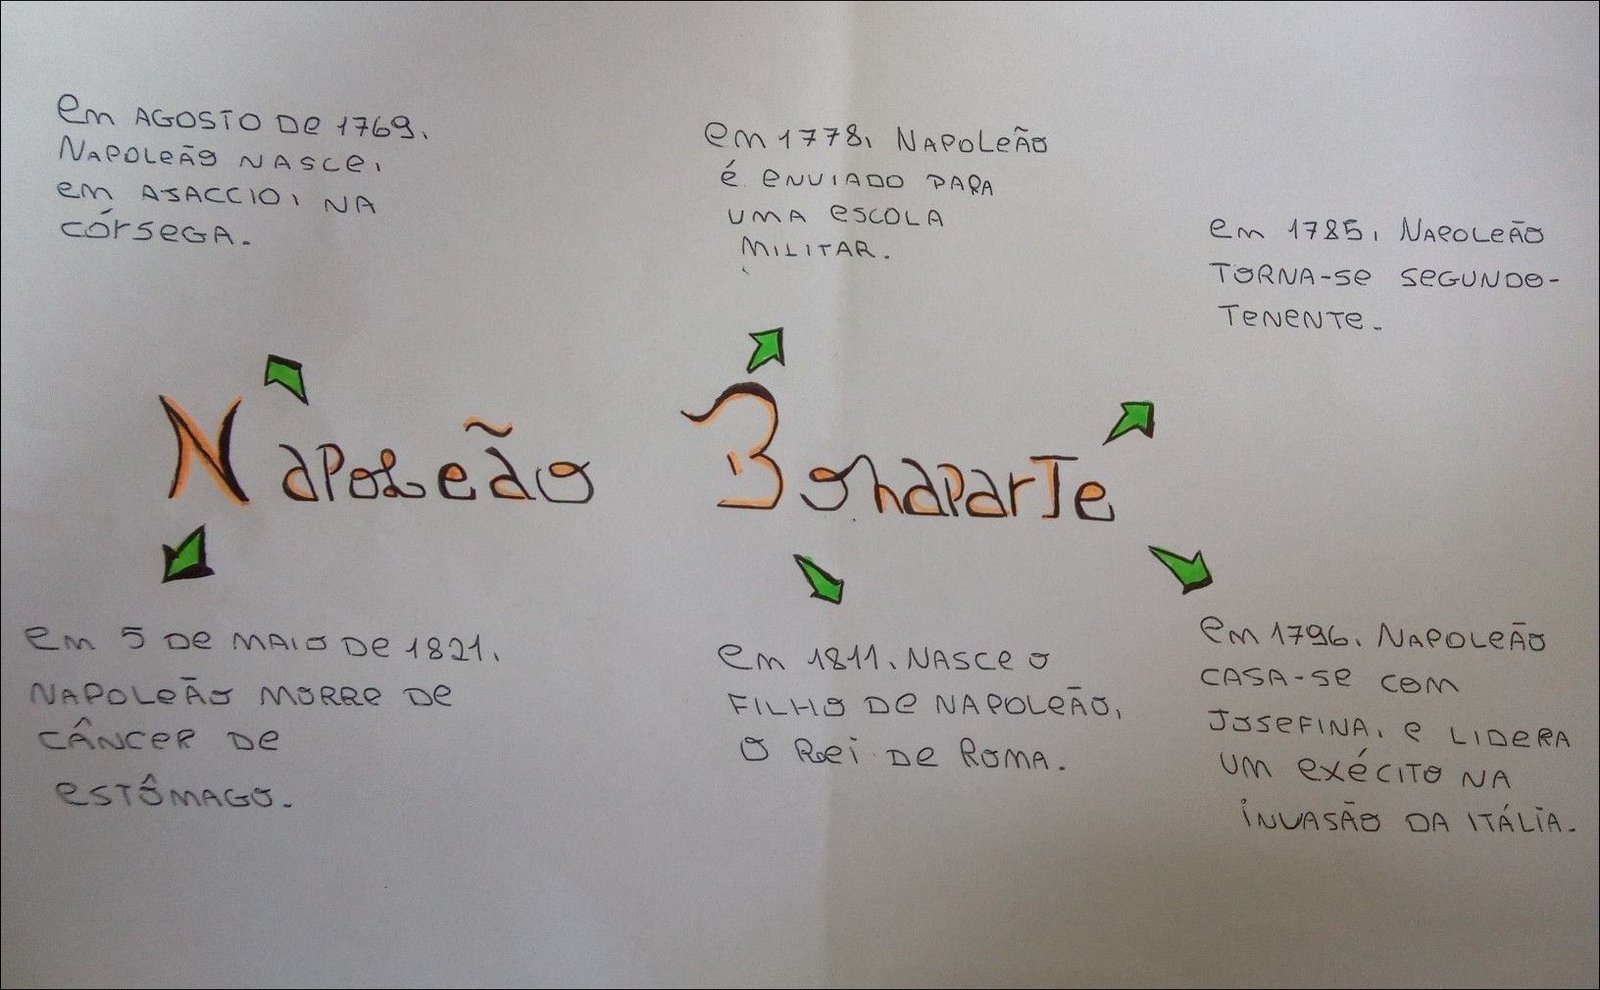 Em AGOSTO DE 1769,
NAPOLEÃO NASCE,
EM AJACCIO, NA
CÓRSEGA.
EM 1778, NAPOLEÃO
É ENVIADO PARA
UMA ESCOLA
MILITAR.
EM 1785, NAPOLEÃO
TORNA-SE SEGUNDO-
TENENTE.
Napoleão Bonaparte
EM 5 DE MAIO DE 1821,
NAPOLEÃO MORRE DE
CÂNCER DE
ESTÔMAGO.
EM 1811, NASCE O
FILHO DE NAPOLEÃO,
O REI DE ROMA.
EM 1796, NAPOLEÃO
CASA-SE COM
JOSEFINA, E LIDERA
UM EXÉCITO NA
INVASÃO DA ITÁLIA.